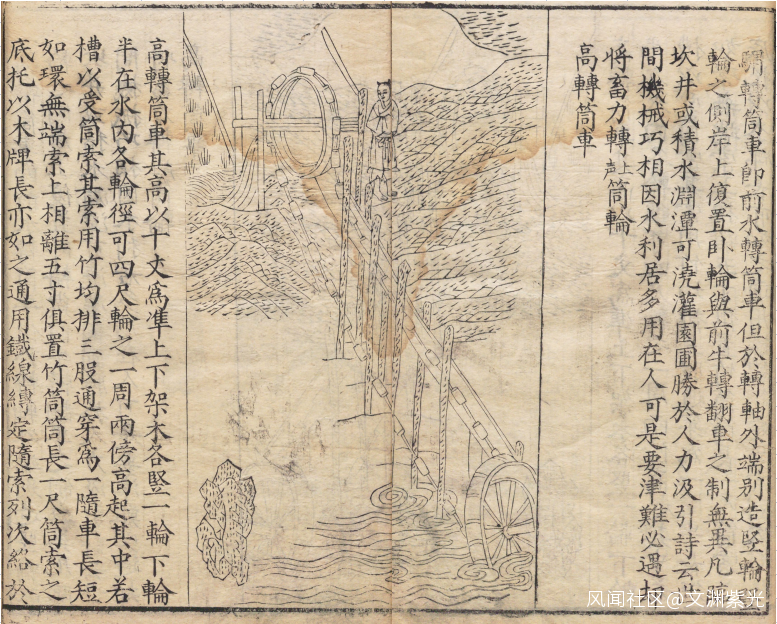 驢轉筒車即前水轉筒車但於轉軸外端别造竪輪
輪之側岸上復置卧輪與前牛轉翻車之制無異凡
坎井或積水淵潭可澆灌園圃勝於人力汲引詩云
間機械巧相因水利居多用在人可是要津難必遇
將畜力轉上聲筒輪
高轉筒車
高轉筒車其高以十丈爲準上下架木各竪一輪下輪
半在水内各輪徑可四尺輪之一周兩傍高起其中若
槽以受筒索其索用竹均排三股通穿爲一隨車長短
如環無端索上相離五寸俱置竹筒筒長一尺筒索之
底托以木牌長亦如之通用鐵線縛定隨索列次絡於
风闻社区@文渊紫光